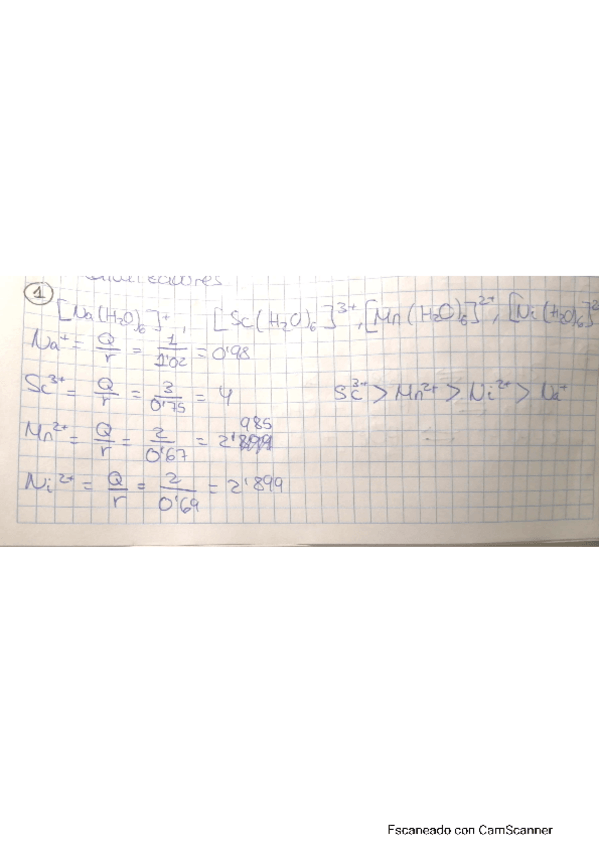 1
[Na(H2O)6]+, [Sc(H2O)6]3+, [Mn(H2O)6]2+, [Ni(H2O)6]2
Na+ = Q/r = 1/1'02 = 0'98
Sc3+ = Q/r = 3/0'75 = 4 Sc3+ > Mn2+ > Ni2+ > Na+
Mn2+ = Q/r = 2/0'67 = 2'985
Ni2+ = Q/r = 2/0'69 = 2'899
Escaneado con CamScanner